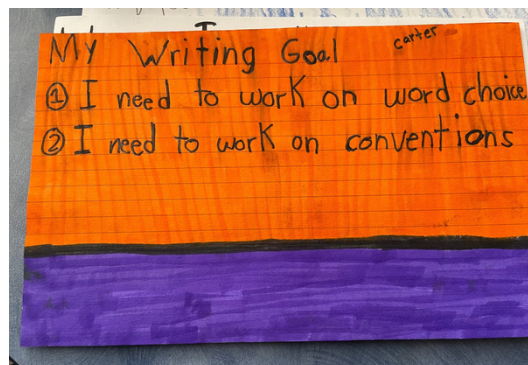 My Writing Goal
carter
① I need to work on word choice
② I need to work on conventions